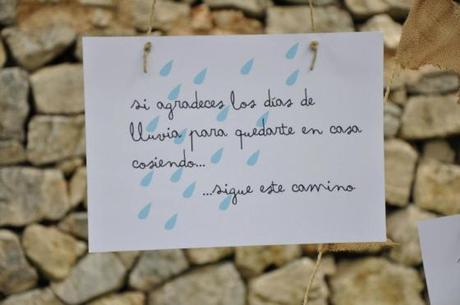 si agradeces los días de
lluvia para quedarte en casa
cosiendo...
...sigue este camino